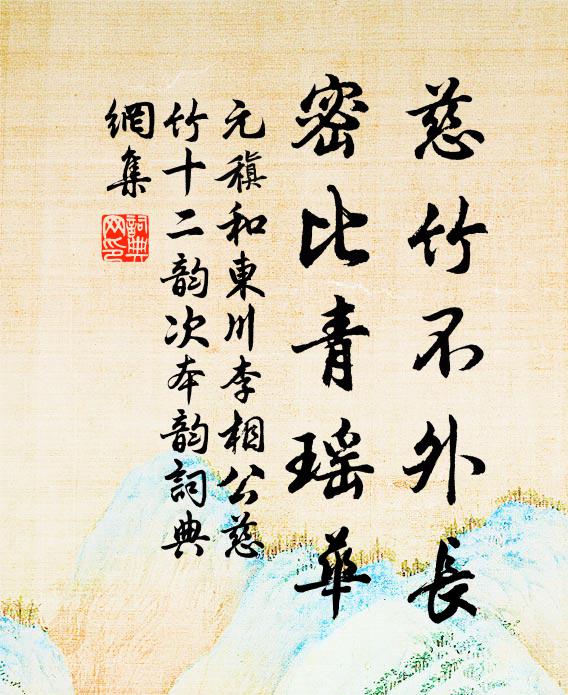 慈竹不外長
密比青瑶華
元稹和東川李相公慈
竹十二韵次本韵詞典
網集
詞典
网印